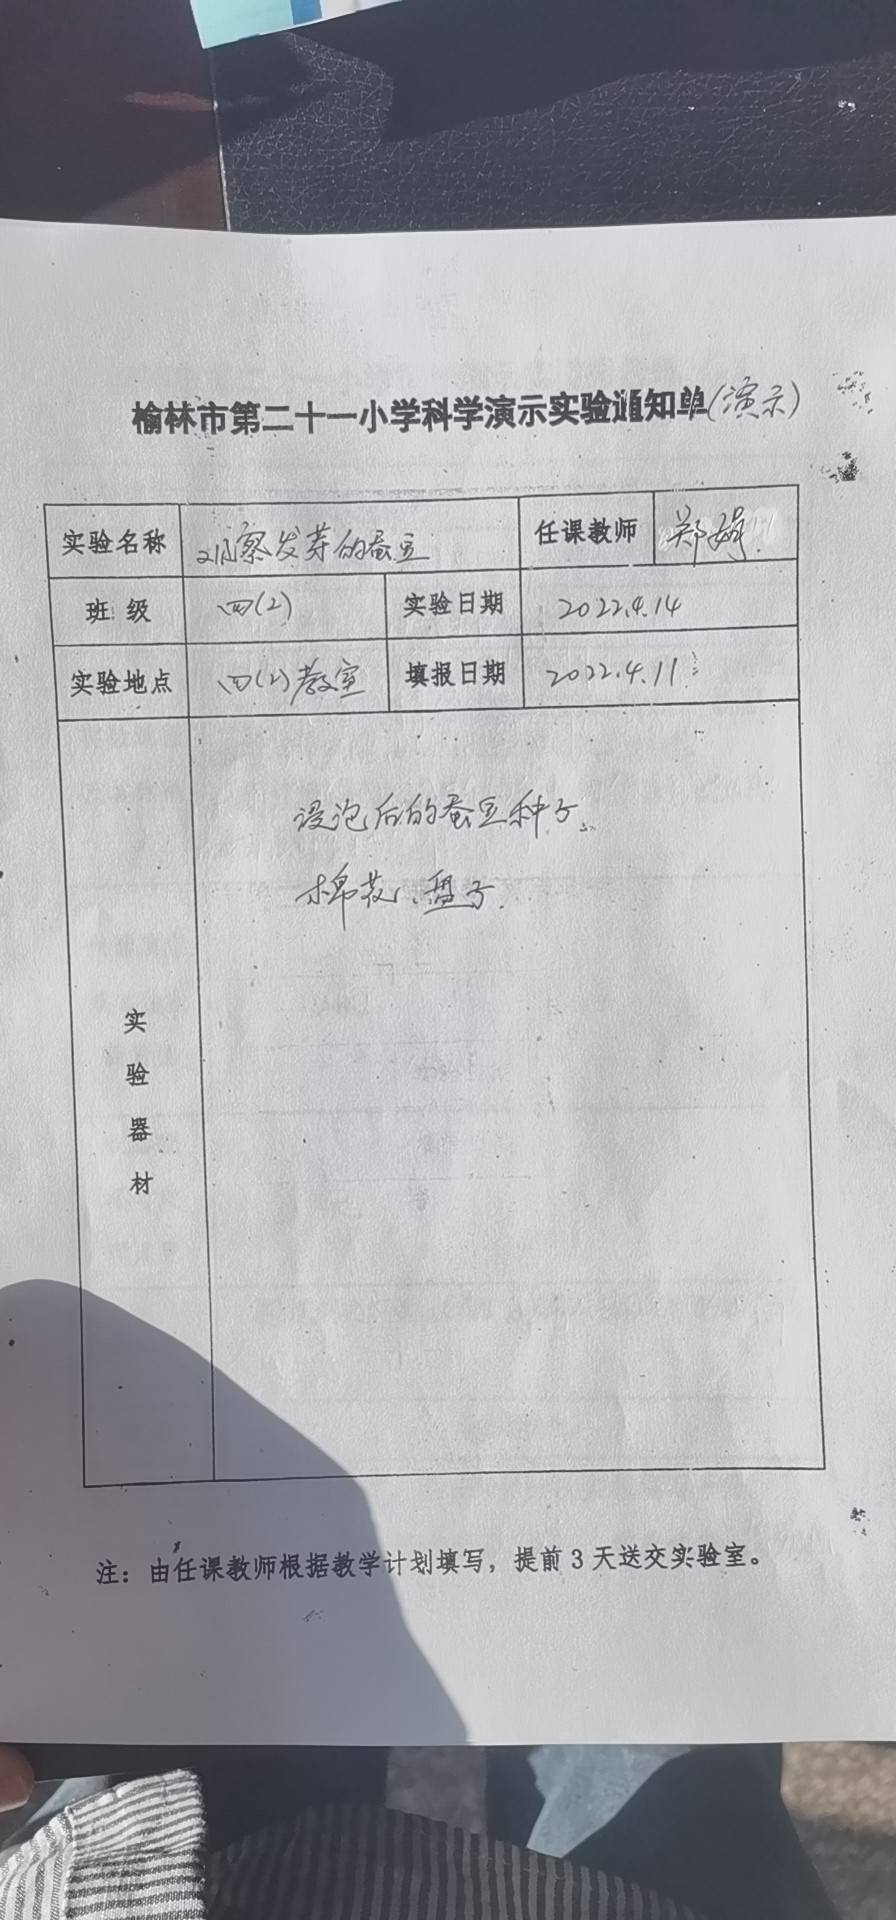 榆林市第二十一小学科学演示实验通知单(演示)
实验名称 观察发芽的蚕豆 任课教师 郑娟
班 级 四(2) 实验日期 2022.4.14
实验地点 四(2)教室 填报日期 2022.4.11
浸泡后的蚕豆种子、
棉花、盘子.
实验器材
注：由任课教师根据教学计划填写，提前 3 天送交实验室。